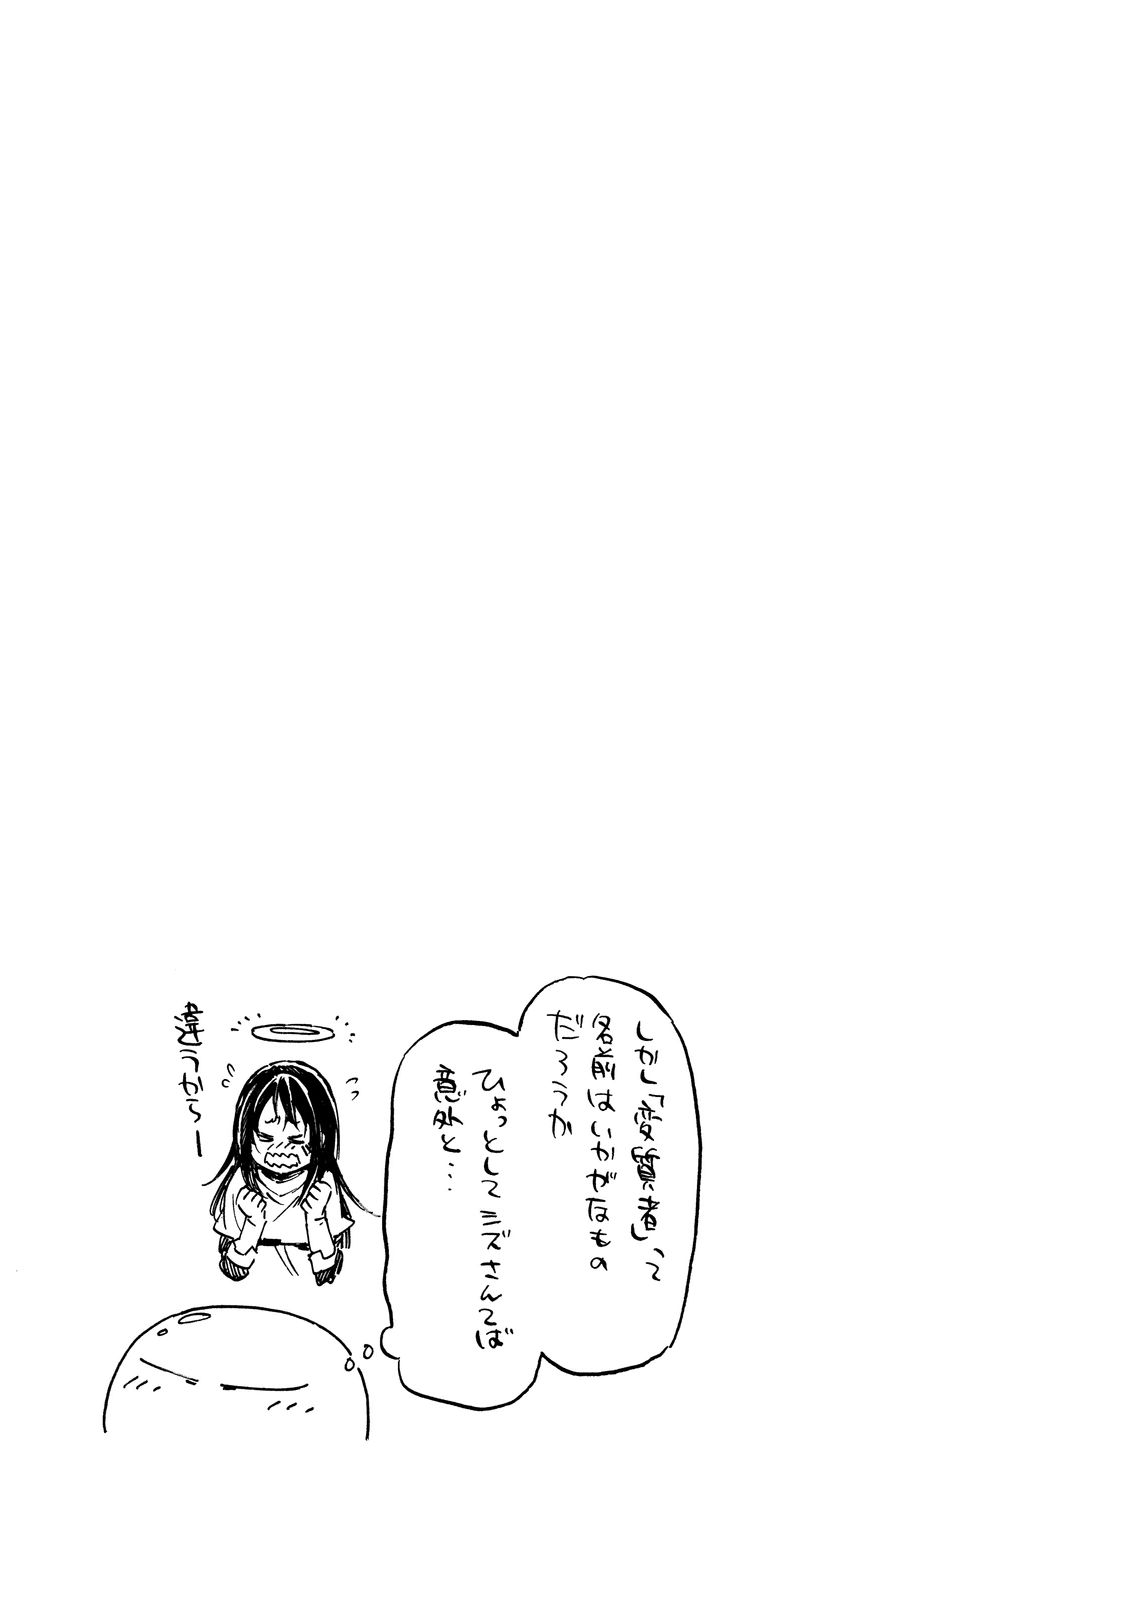 しかし「変質者」って
名前はいかがなもの
だろうか
ひょっとしてシズさんてば
意外と…
違うからー